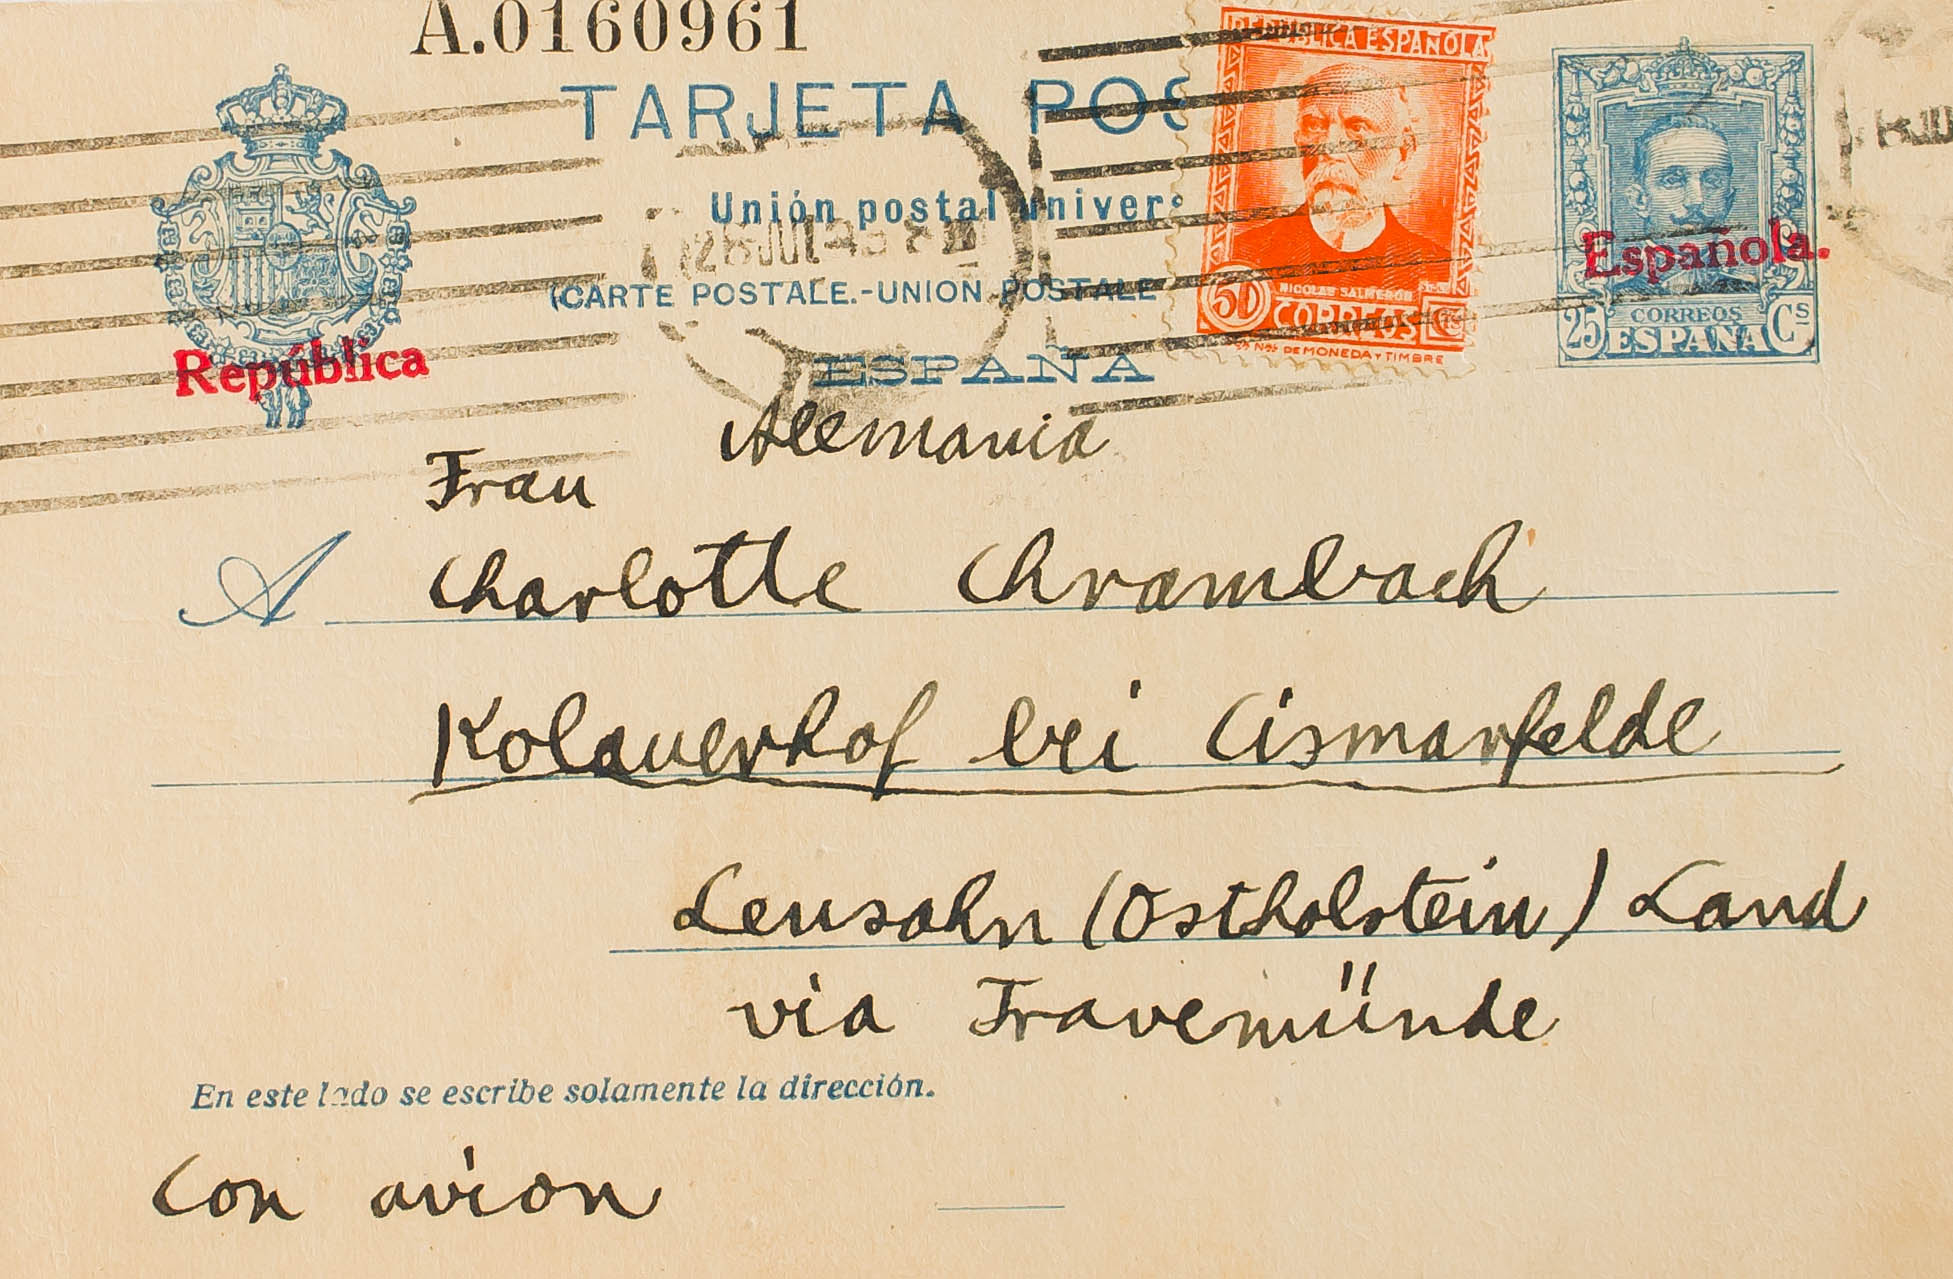 A.0160961
TARJETA POS
Unión postal univers
(CARTE POSTALE.-UNION POSTALE
ESPAÑA
REPUBLICA ESPAÑOLA
NICOLAS SALMERÓN
50 CORREOS Cts
DE MONEDA Y TIMBRE
República
Española.
CORREOS
25 ESPAÑA Cs
Alemania
Frau
A Charlotte Chrambach
Kolauerhof bei Cismarfelde
Lensahn (Ostholstein) Land
via Travemünde
En este lado se escribe solamente la dirección.
Con avion